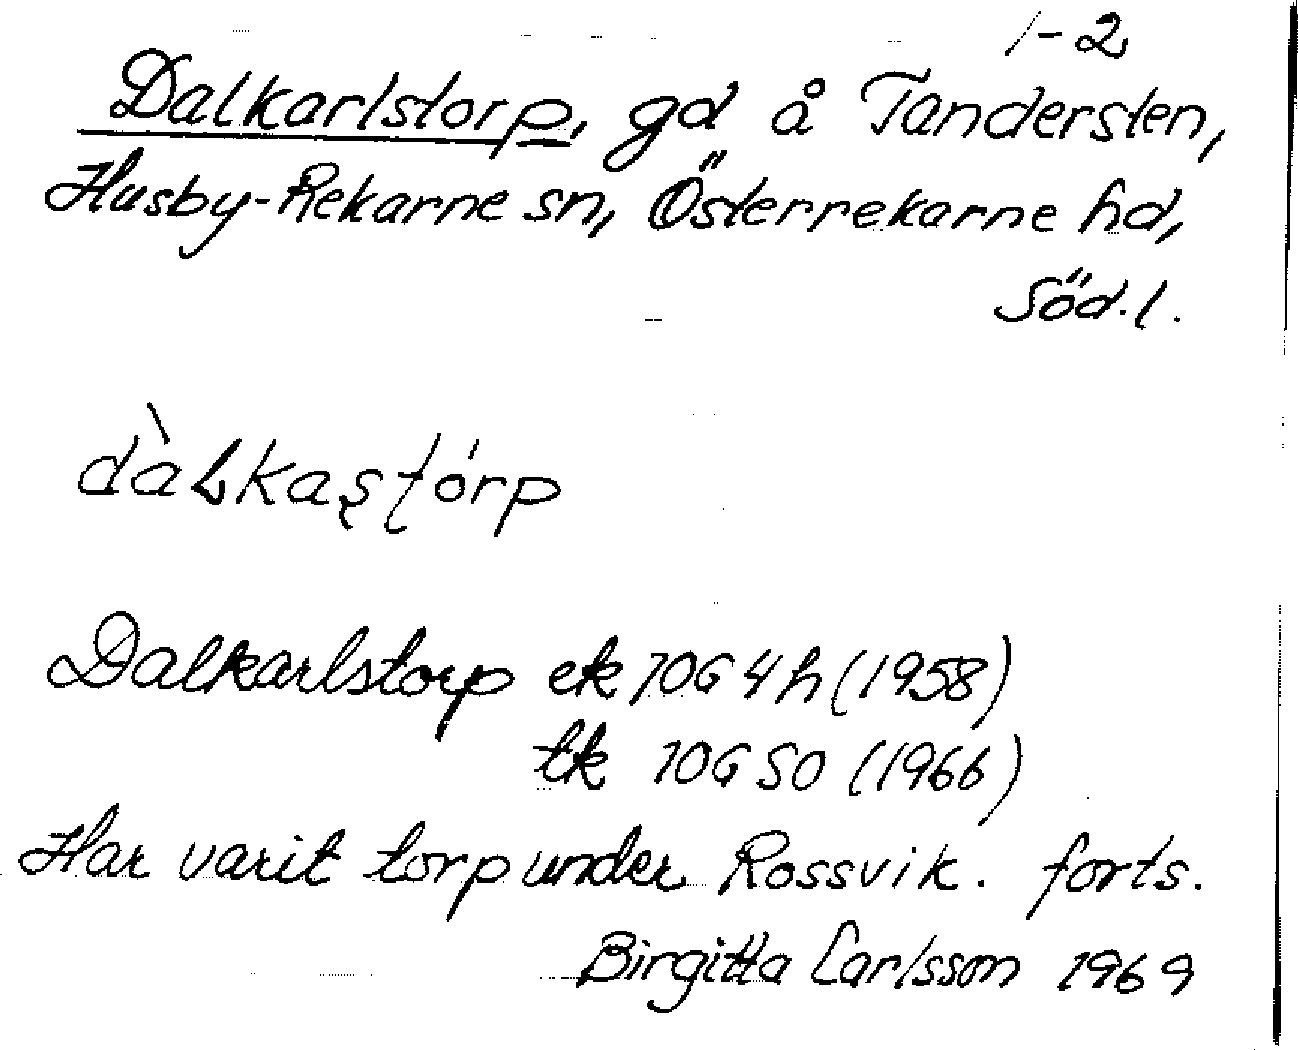 1-2
Dalkarlstorp, gd å Tandersten,
Husby-Rekarne sn, Österrekarne hd,
Söd.l.
dàLkaʂʈórp
Dalkarlstorp ek 10G 4h (1958)
tk 10G SO (1966)
Har varit torp under Rossvik. forts.
Birgitta Carlsson 1969